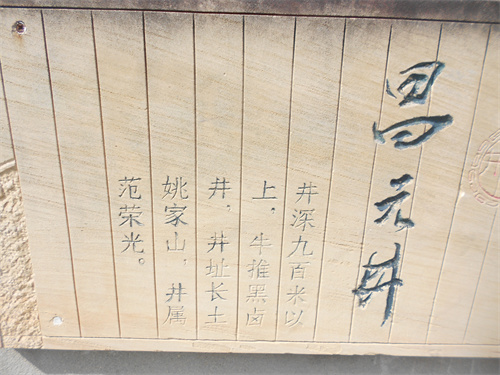 昌元井
井深九百米以
上，牛推黑卤
井，井址长土
姚家山，井属
范荣光。